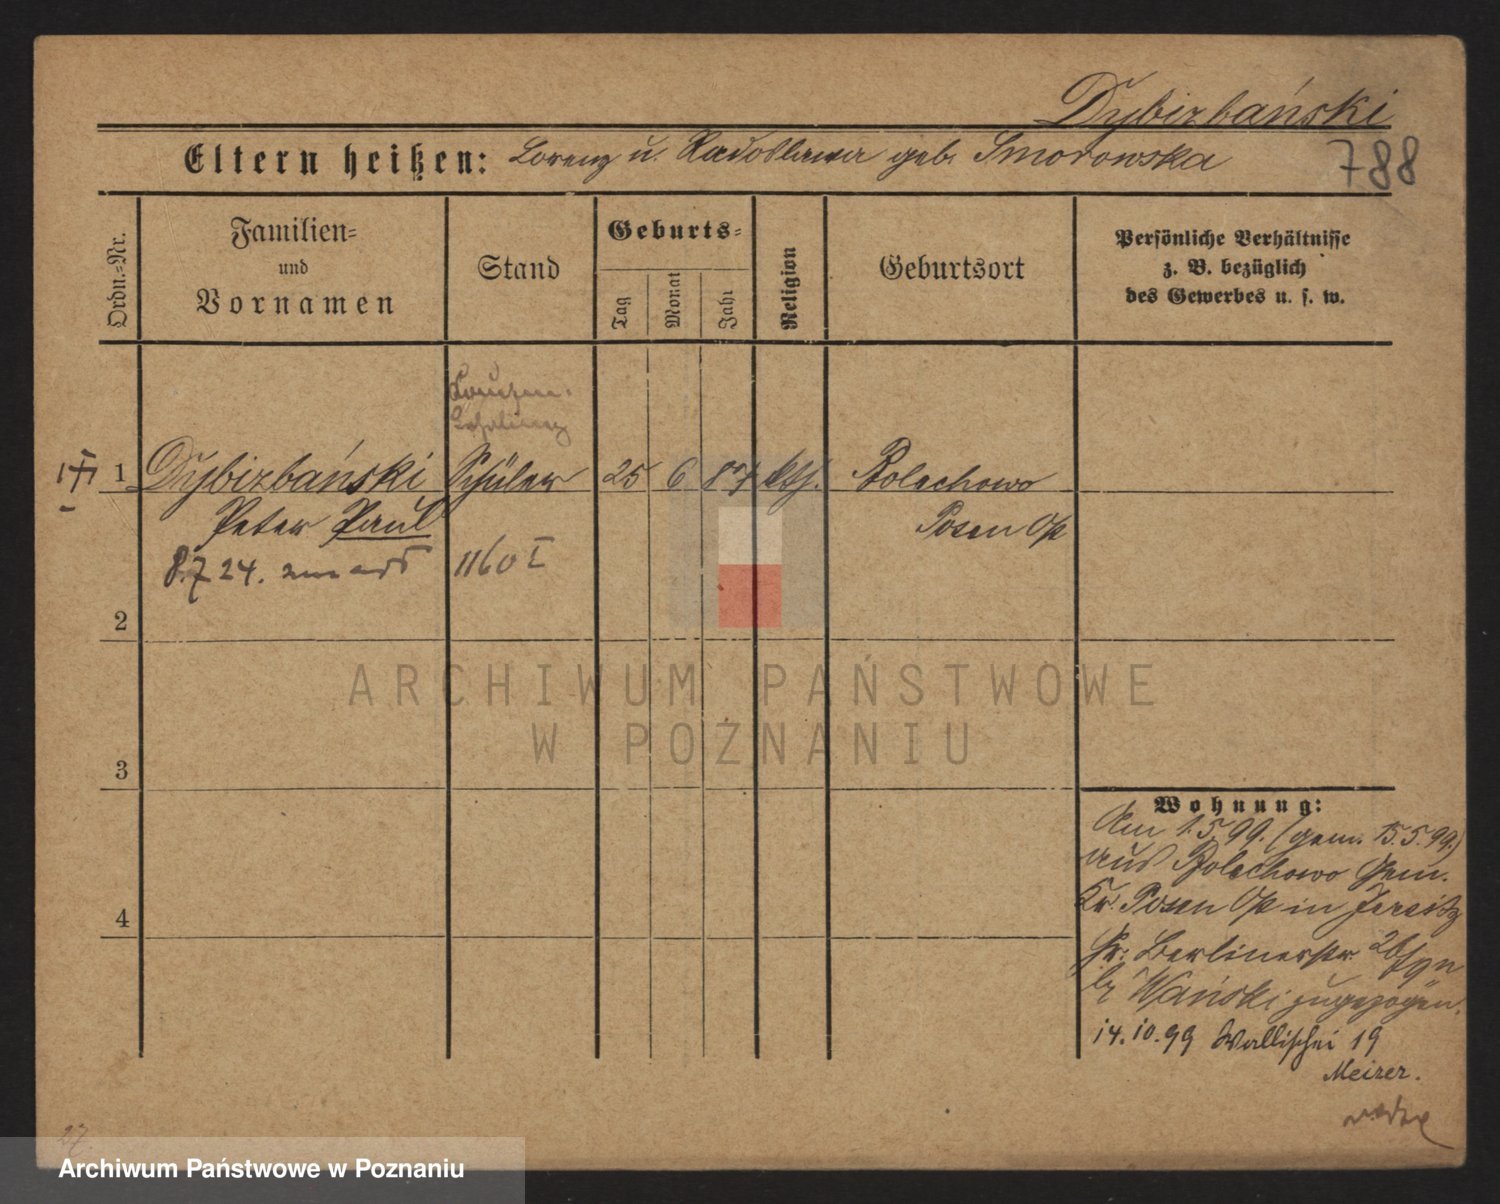 Dybizbański
Eltern heißen: Lorenz u. Radoslawa geb. Smorowska
788
Ordn.-Nr.
Familien-
und
Vornamen
Stand
Geburts-
Tag
Monat
Jahr
Religion
Geburtsort
Persönliche Verhältnisse
z. B. bezüglich
des Gewerbes u. s. w.
1 Dybizbański Schüler 25 6 87 kth. Bolechowo
Peter Paul Posen Ost
8.7 24. 1160 I
2
ARCHIWUM PAŃSTWOWE
W POZNANIU
3
4
Wohnung:
Am 1.5.99. (gem. 15.5.99.)
aus Bolechowo Gem.
Kr. Posen Ost in Jersitz
Gr. Berlinerstr.
b/ Wański zugezogen.
14.10.99 Wallischei 19
Meizer.
27.
Archiwum Państwowe w Poznaniu